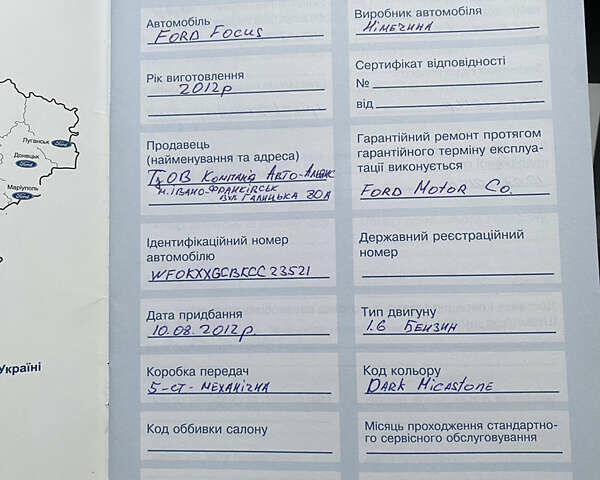 Луганськ
Ford
Донецьк
Ford
Маріуполь
Ford
Україні
Автомобіль
FORD FOCUS
Рік виготовлення
2012р
Продавець
(найменування та адреса)
ТзОВ Компанія Авто-Альянс
м. ІВАНО-ФРАНКІВСЬК
вул Галицька 30А
Ідентифікаційний номер
автомобілю
WF0KXXGCBKCC23521
Дата придбання
10.08.2012р.
Коробка передач
5-ст- МЕХАНІЧНА
Код оббивки салону
Виробник автомобіля
НІМЕЧЧИНА
Сертифікат відповідності
№
від
Гарантійний ремонт протягом
гарантійного терміну експлуа-
тації виконується
FORD MOTOR CO.
Державний реєстраційний
номер
Тип двигуну
1.6 БЕНЗИН
Код кольору
DARK MICASTONE
Місяць проходження стандартно-
го сервісного обслуговування